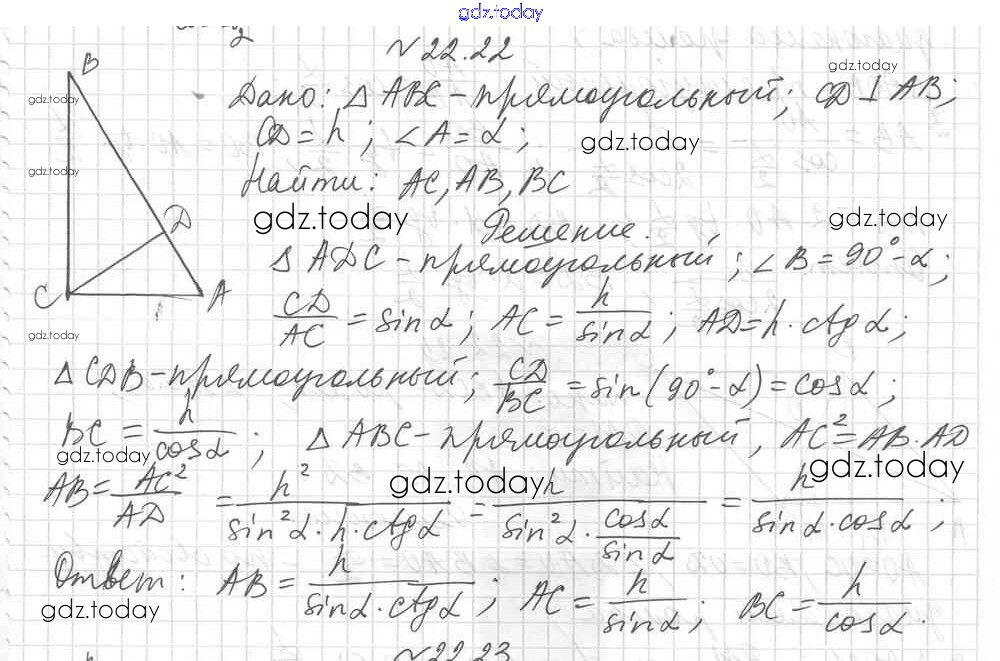 gdz.today
№ 22.22
gdz.today
B
gdz.today
Дано: △ ABC - прямоугольный; CD ⊥ AB;
CD = h; ∠A = α;
gdz.today
gdz.today
Найти: AC, AB, BC
gdz.today
gdz.today
D
Решение.
△ ADC - прямоугольный; ∠B = 90° - α;
C
A
CD/AC = sin α; AC = h/sin α; AD = h · ctg α;
gdz.today
△ CDB - прямоугольный; CD/BC = sin(90° - α) = cos α;
BC = h/cos α; △ ABC - прямоугольный, AC² = AB · AD
gdz.today
gdz.today
AB = AC²/AD = h²/(sin²α · h · ctg α) = h/(sin²α · cos α/sin α) = h/(sin α · cos α);
gdz.today
Ответ: AB = h/(sin α · ctg α); AC = h/sin α; BC = h/cos α.
gdz.today
№ 22.23